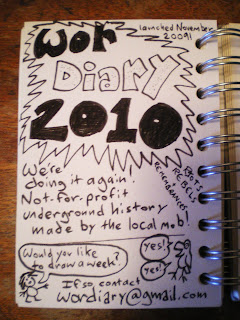 launched November
2009!
Wor
Diary
2010
We're
doing it again!
Not-for-profit
underground history
made by the local mob!
RIOTS
REBELS
REMEMBRANCE
Would you like
to draw a week?
yes!
yes!
If so contact
wordiary@gmail.com